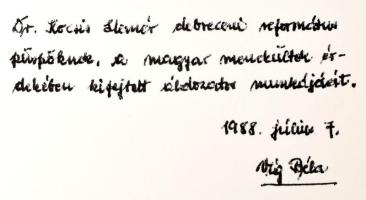 Dr. Kocsis Elemér debreceni református
püspöknek, a magyar menekültek ér-
dekében kifejtett áldozatos munkájáért.
1988. július 7.
Vig Béla